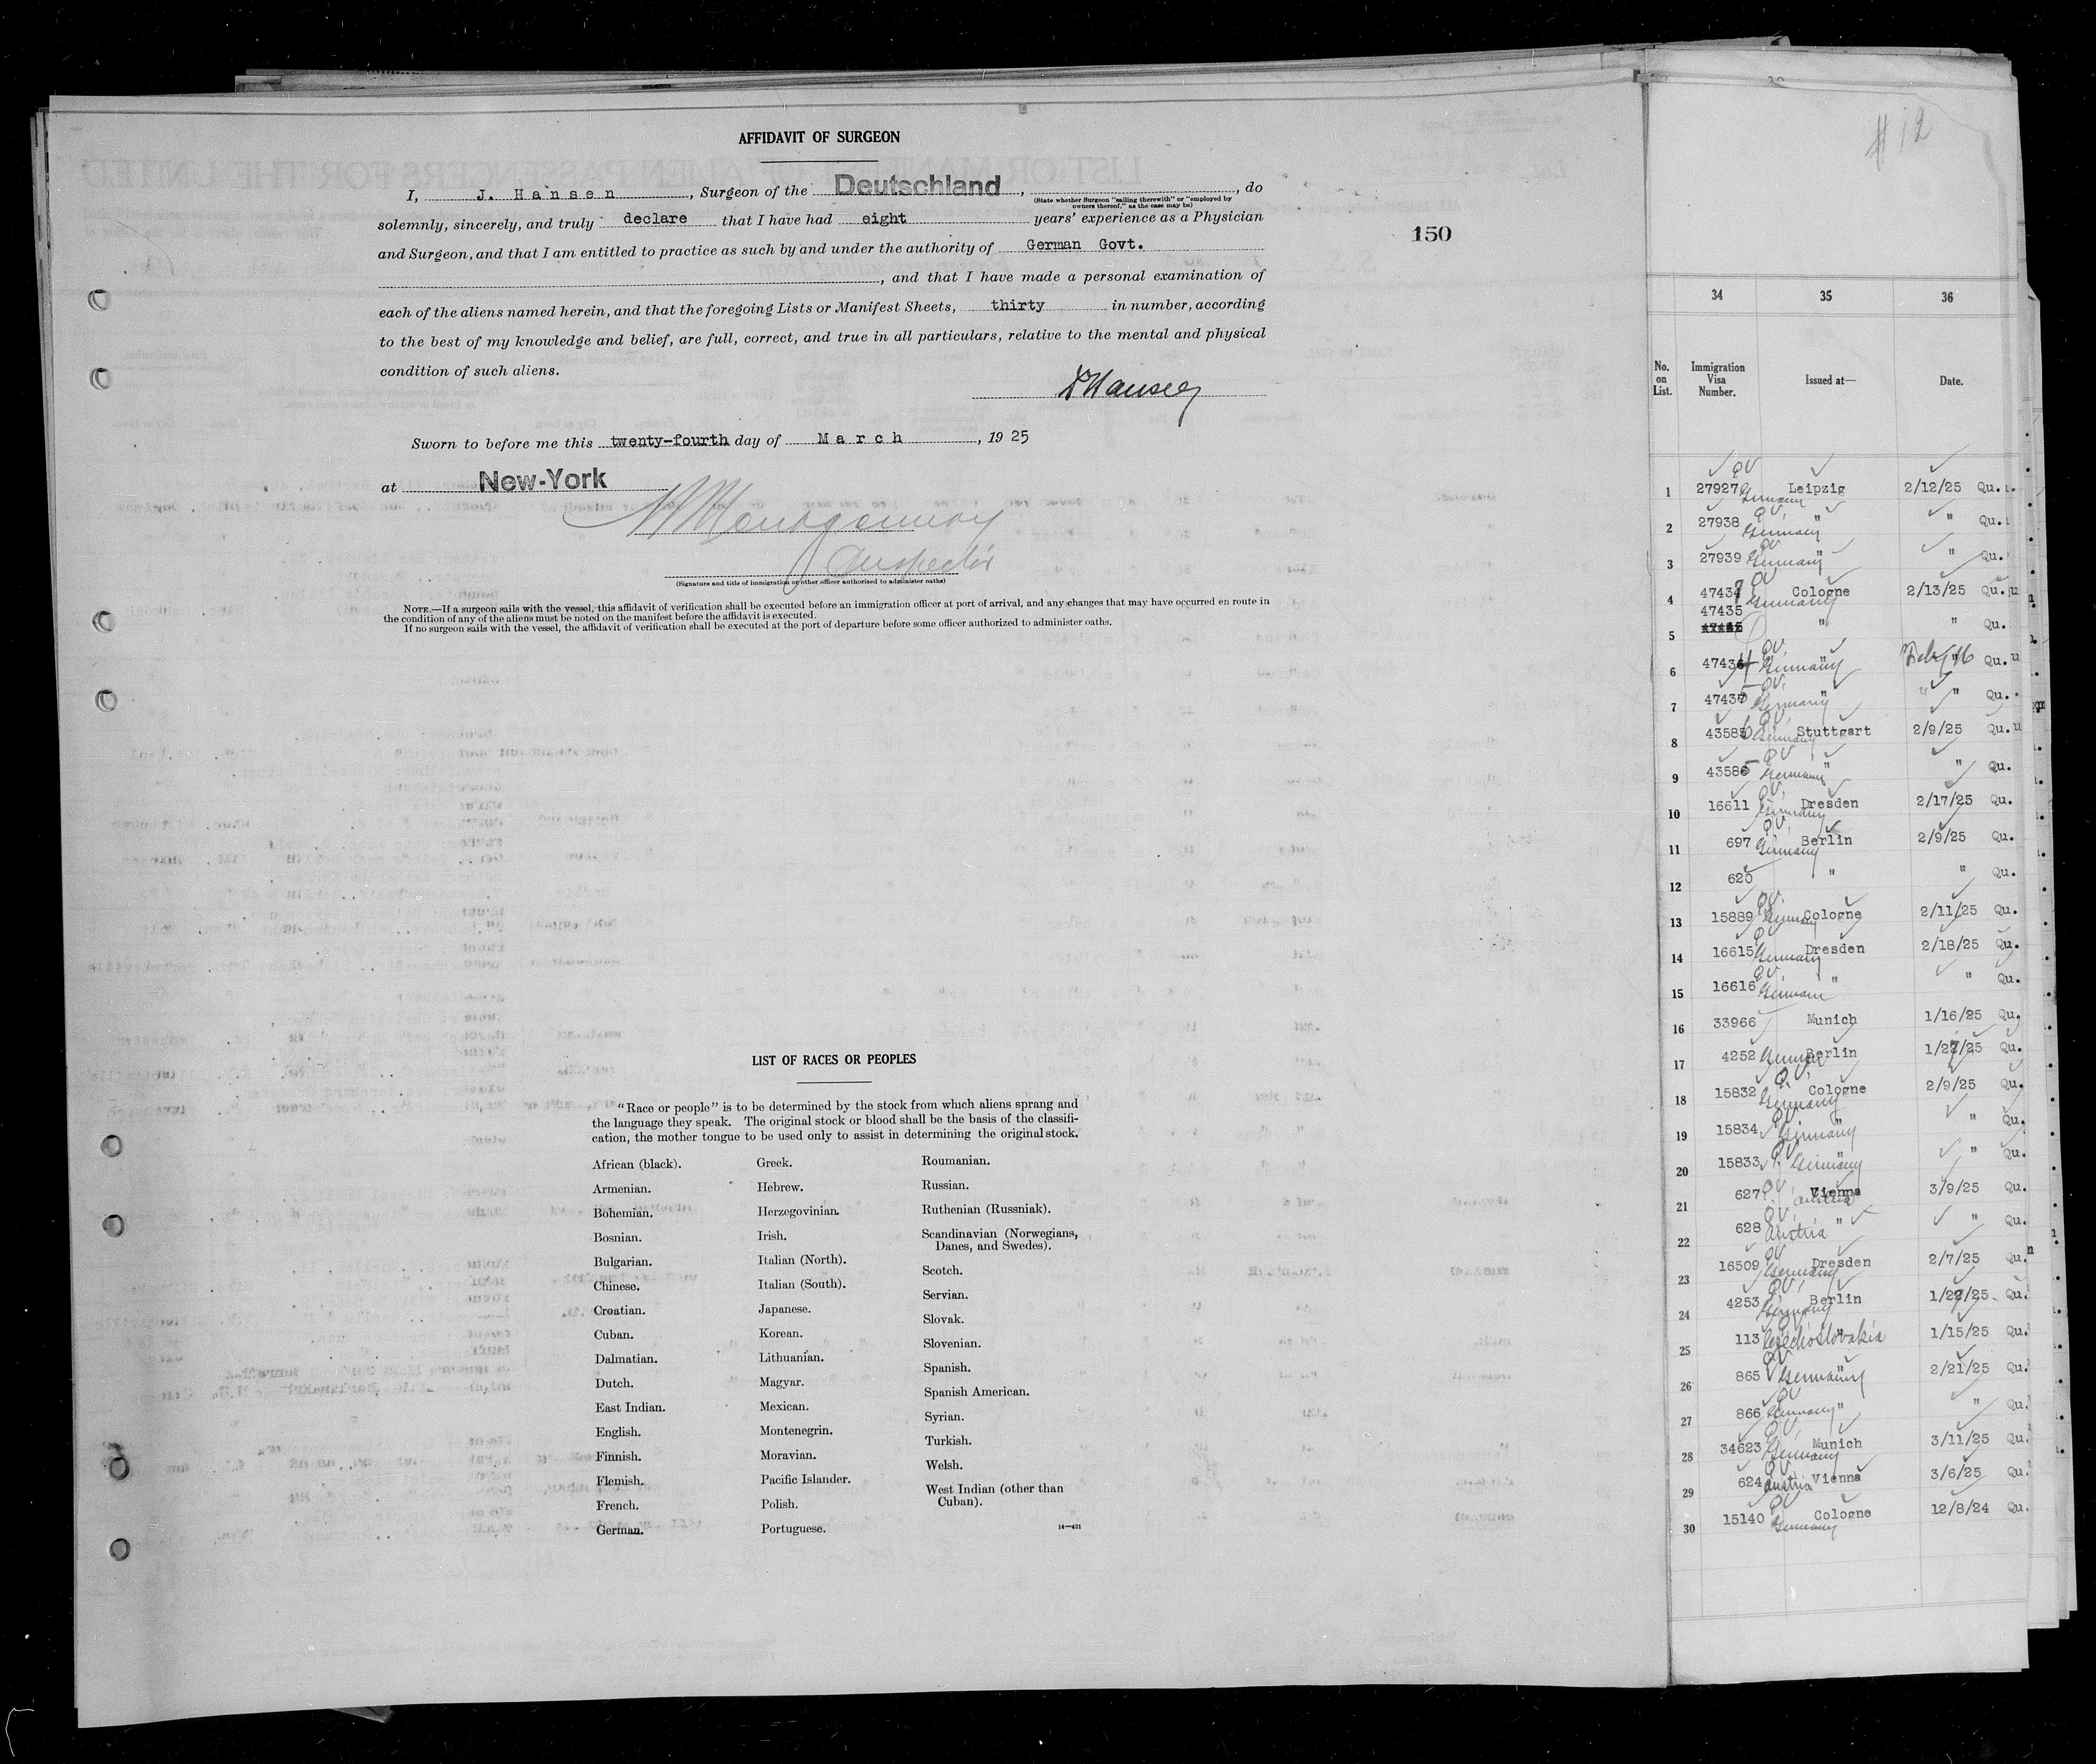 AFFIDAVIT OF SURGEON
I, J. Hansen, Surgeon of the Deutschland, , do
(State whether Surgeon "sailing therewith" or "employed by
owners thereof," as the case may be)
solemnly, sincerely, and truly declare that I have had eight years' experience as a Physician
and Surgeon, and that I am entitled to practice as such by and under the authority of German Govt.
, and that I have made a personal examination of
each of the aliens named herein, and that the foregoing Lists or Manifest Sheets, thirty in number, according
to the best of my knowledge and belief, are full, correct, and true in all particulars, relative to the mental and physical
condition of such aliens.
Hansen
Sworn to before me this twenty-fourth day of March, 1925
at New-York
Montgomery
Inspector
(Signature and title of immigration or other officer authorized to administer oaths)
NOTE.—If a surgeon sails with the vessel, this affidavit of verification shall be executed before an immigration officer at port of arrival, and any changes that may have occurred en route in
the condition of any of the aliens must be noted on the manifest before the affidavit is executed.
If no surgeon sails with the vessel, the affidavit of verification shall be executed at the port of departure before some officer authorized to administer oaths.
150
LIST OF RACES OR PEOPLES
"Race or people" is to be determined by the stock from which aliens sprang and
the language they speak. The original stock or blood shall be the basis of the classifi-
cation, the mother tongue to be used only to assist in determining the original stock.
African (black).
Armenian.
Bohemian.
Bosnian.
Bulgarian.
Chinese.
Croatian.
Cuban.
Dalmatian.
Dutch.
East Indian.
English.
Finnish.
Flemish.
French.
German.
Greek.
Hebrew.
Herzegovinian.
Irish.
Italian (North).
Italian (South).
Japanese.
Korean.
Lithuanian.
Magyar.
Mexican.
Montenegrin.
Moravian.
Pacific Islander.
Polish.
Portuguese.
Roumanian.
Russian.
Ruthenian (Russniak).
Scandinavian (Norwegians,
Danes, and Swedes).
Scotch.
Servian.
Slovak.
Slovenian.
Spanish.
Spanish American.
Syrian.
Turkish.
Welsh.
West Indian (other than
Cuban).
14—431
#12
34 35 36
No. on List. Immigration Visa Number. Issued at— Date.
1 27927 Germany Leipzig 2/12/25 Qu.
2 27938 Germany " " Qu.
3 27939 Germany " " Qu.
4 47434 Germany Cologne 2/13/25 Qu.
5 47435 " " Qu.
6 4743 Germany " Feb 16 Qu.
7 4743 Germany " " Qu.
8 4358 Germany Stuttgart 2/9/25 Qu.
9 4358 Germany " " Qu.
10 16611 Germany Dresden 2/17/25 Qu.
11 697 Germany Berlin 2/9/25 Qu.
12 620 " " Qu.
13 15889 Germany Cologne 2/11/25 Qu.
14 16615 Germany Dresden 2/18/25 Qu.
15 16616 German " " Qu.
16 33966 Munich 1/16/25 Qu.
17 4252 German Berlin 1/22/25 Qu.
18 15832 Germany Cologne 2/9/25 Qu.
19 15834 Germany " " Qu.
20 15833 Germany " " Qu.
21 627 Austria Vienna 3/9/25 Qu.
22 628 Austria " " Qu.
23 16509 Germany Dresden 2/7/25 Qu.
24 4253 Germany Berlin 1/22/25 Qu.
25 113 Czechoslovakia " 1/15/25 Qu.
26 865 Germany " 2/21/25 Qu.
27 866 Germany " " Qu.
28 34623 Germany Munich 3/11/25 Qu.
29 624 Austria Vienna 3/6/25 Qu.
30 15140 Germany Cologne 12/8/24 Qu.